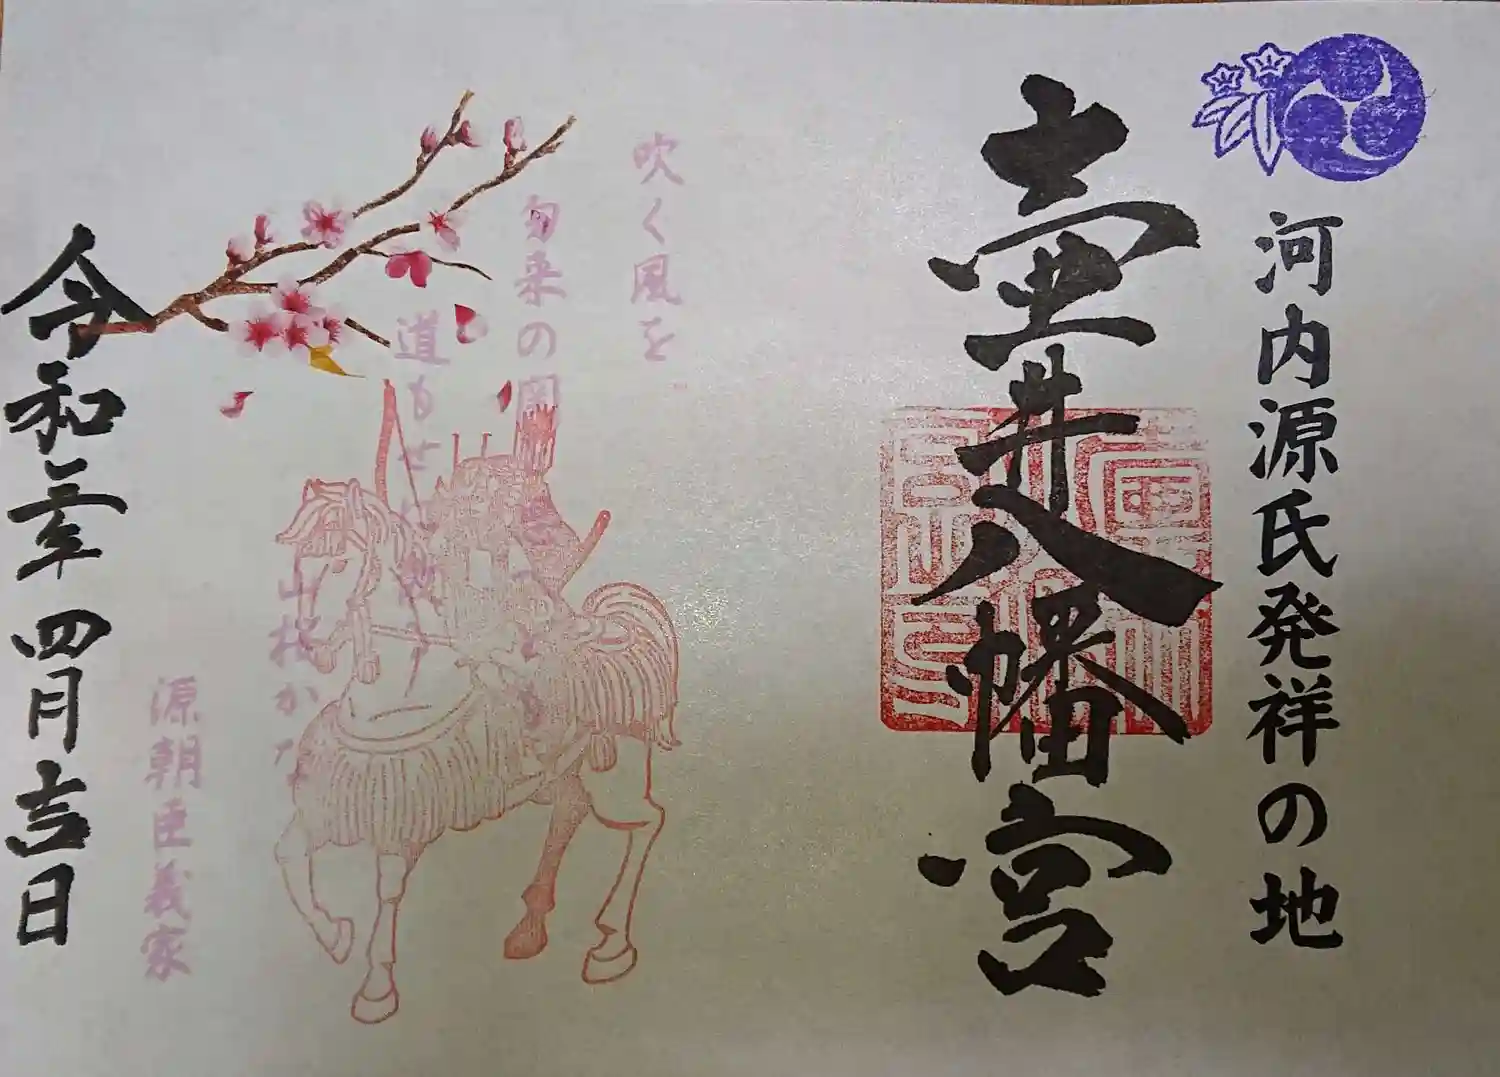 河内源氏発祥の地
壷井八幡宮
吹く風を
勿来の関と思へども
道もせに散る
山桜かな
源朝臣義家
令和年四月吉日